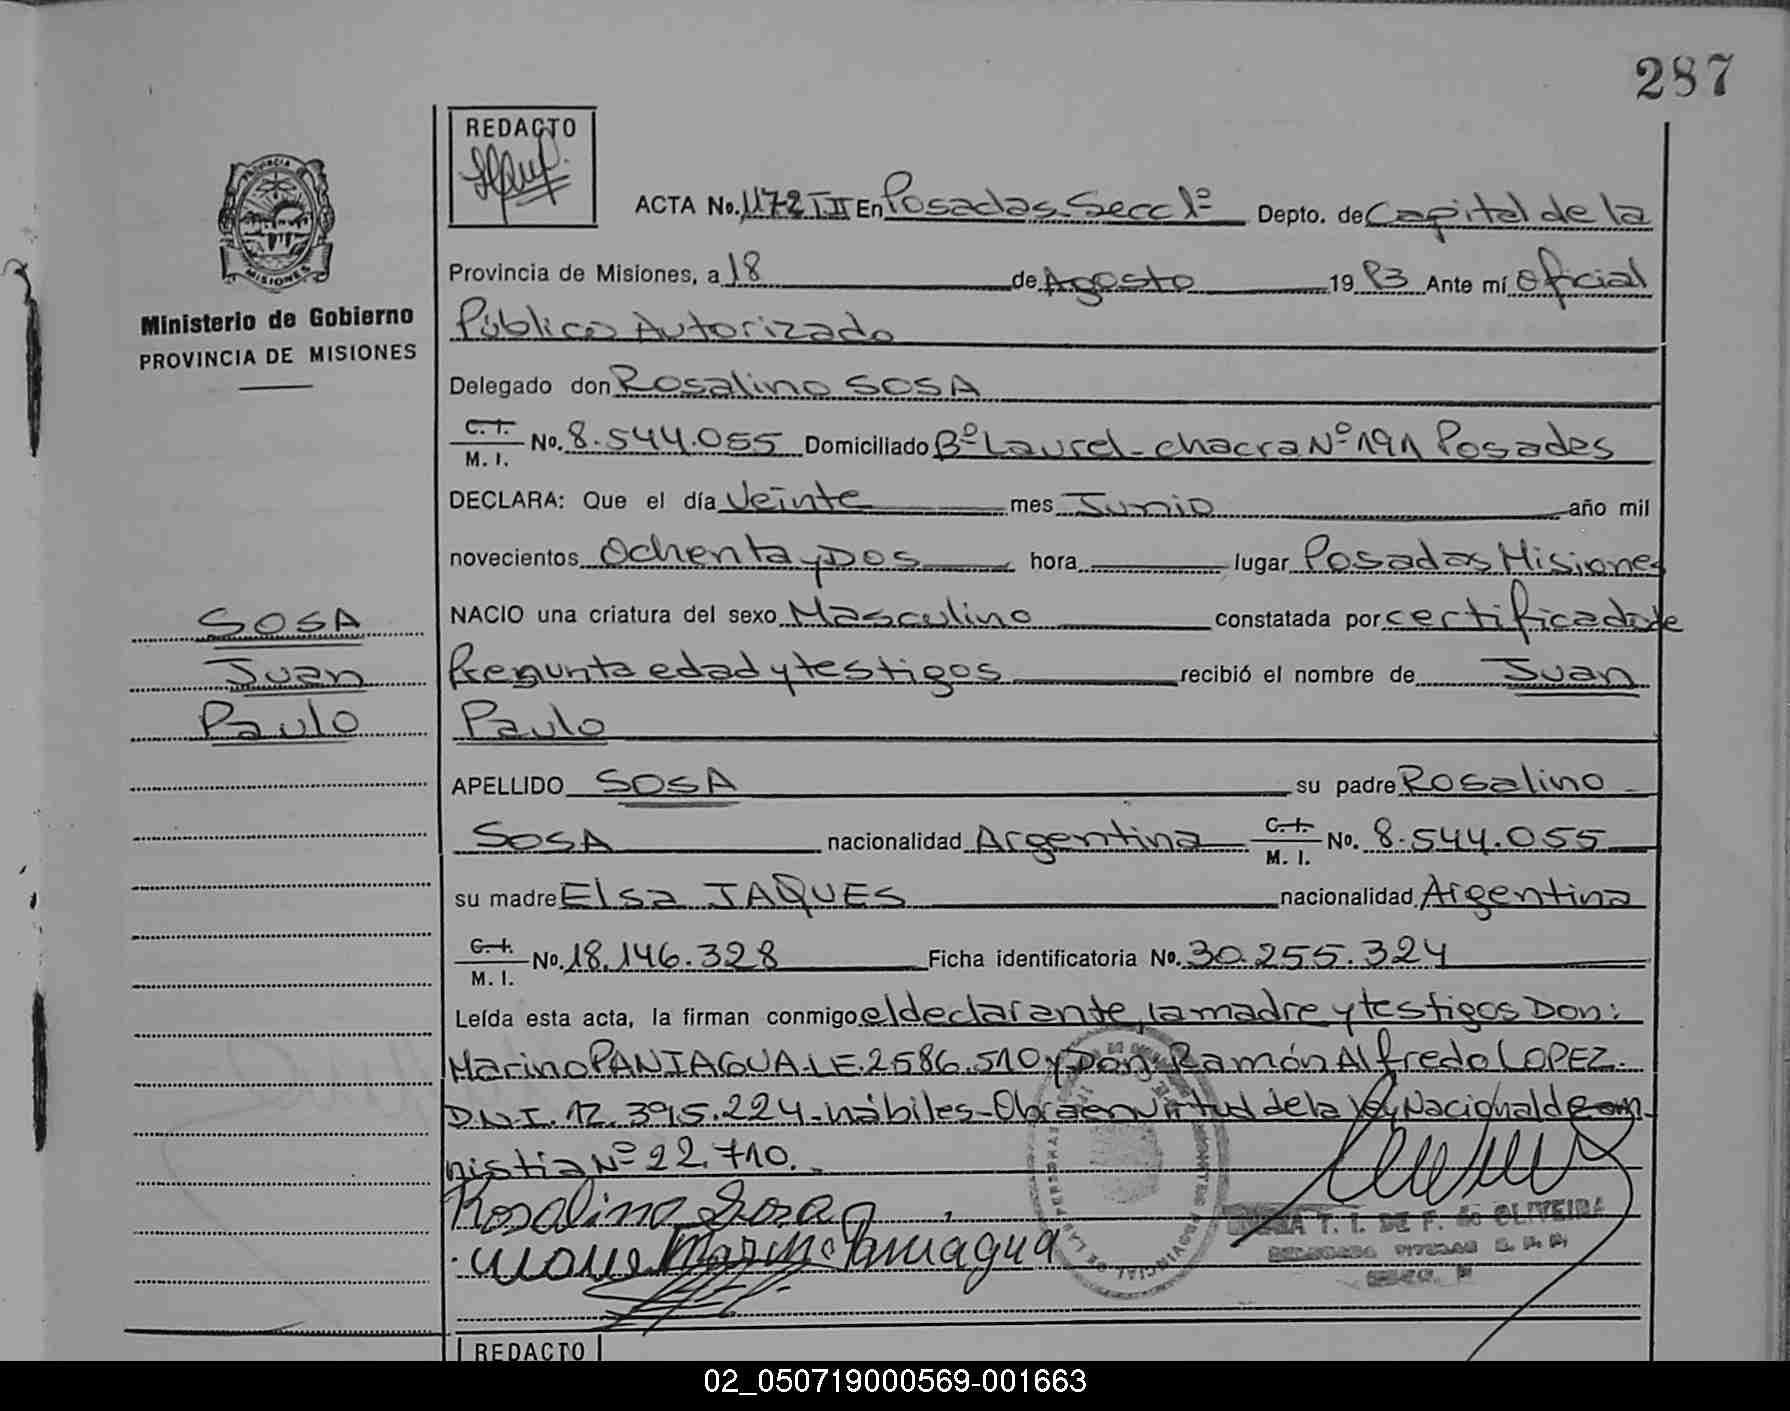 287
REDACTO
ACTA No. 1172 III En Posadas-Secc 1º Depto. de Capital de la
Provincia de Misiones, a 18 de Agosto 1983 Ante mí Oficial
Público Autorizado
Ministerio de Gobierno
PROVINCIA DE MISIONES
Delegado don Rosalino SOSA
C. I. M. I. No. 8.544.055 Domiciliado Bº Laurel - chacra Nº 191 Posadas
DECLARA: Que el día Veinte mes Junio año mil
novecientos Ochenta y DOS hora lugar Posadas Misiones
NACIO una criatura del sexo Masculino constatada por certificado de
Pregunta edad y testigos recibió el nombre de Juan
Paulo
SOSA
Juan
Paulo
APELLIDO SOSA su padre Rosalino
SOSA nacionalidad Argentina C. I. M. I. No. 8.544.055
su madre Elsa JAQUES nacionalidad Argentina
C. I. M. I. No. 18.146.328 Ficha identificatoria No. 30.255.324
Leída esta acta, la firman conmigo el declarante, la madre y testigos Don:
Marino PANIAGUA-LE.2586.510 y Don Ramón Alfredo LOPEZ.
D.N.I. 12.395.224-hábiles-Obra en virtud de la Ley Nacional de am-
nistia Nº 22.710.
Rosalino Sosa
Marino Paniagua
T. I. DE F. de OLIVEIRA
REDACTO
02_050719000569-001663